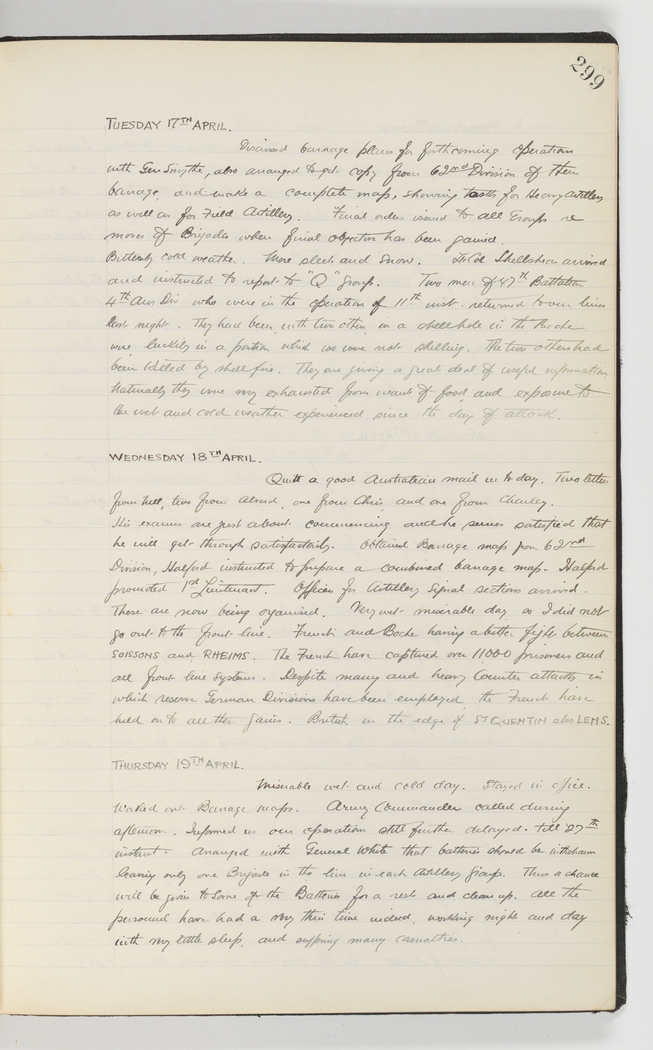 299
TUESDAY 17TH APRIL.
Discussed barrage plans for forthcoming operation
with Gen Smythe, also arranged to get copy from 62nd Division of their
barrage, and make a complete map, showing tasks for Heavy Artillery
as well as for Field Artillery. Final orders issued to all Groups re
moves of Brigades when final objective has been gained.
Bitterly cold weather. More sleet and snow. Lt Col Shellshear arrived
and instructed to report to "Q" Group. Two men of 47th Battalion
4th Aus Div who were in the operation of 11th inst. returned to our lines
last night. They had been, with two others, in a shell hole in the Boche
wire luckily in a portion which we were not shelling. The two others had
been killed by shell fire. They are giving a great deal of useful information
Naturally they were very exhausted from want of food and exposure to
the wet and cold weather experienced since the day of attack.
WEDNESDAY 18TH APRIL.
Quite a good Australian mail in to day. Two letters
from Nell, two from Alsead, one from Chris and one from Charley.
His exams are just about commencing and he seems satisfied that
he will get through satisfactorily. Obtained Barrage map from 62nd
Division, Halford instructed to prepare a combined barrage map. Halford
promoted 1st Lieutenant. Officers for Artillery Signal sections arrived.
These are now being organised. Very wet miserable day so I did not
go out to the front line. French and Boche having a bitter fight between
SOISSONS and RHEIMS. The French have captured over 11000 prisoners and
all front line systems. Despite many and heavy Counter attacks in
which reserve German Divisions have been employed, the French have
held on to all their gains. British on the edge of ST QUENTIN also LENS.
THURSDAY 19TH APRIL.
Miserable wet and cold day. Stayed in office.
Worked out Barrage maps. Army Commander called during
afternoon. Informed us our operations still further delayed till 27th
instant. Arranged with General White that batteries should be withdrawn
leaving only one Brigade in the line in each Artillery Group. Thus a chance
will be given to some of the Batteries for a rest and clean up. All the
personnel have had a very thin time indeed, working night and day
with very little sleep, and suffering many casualties.